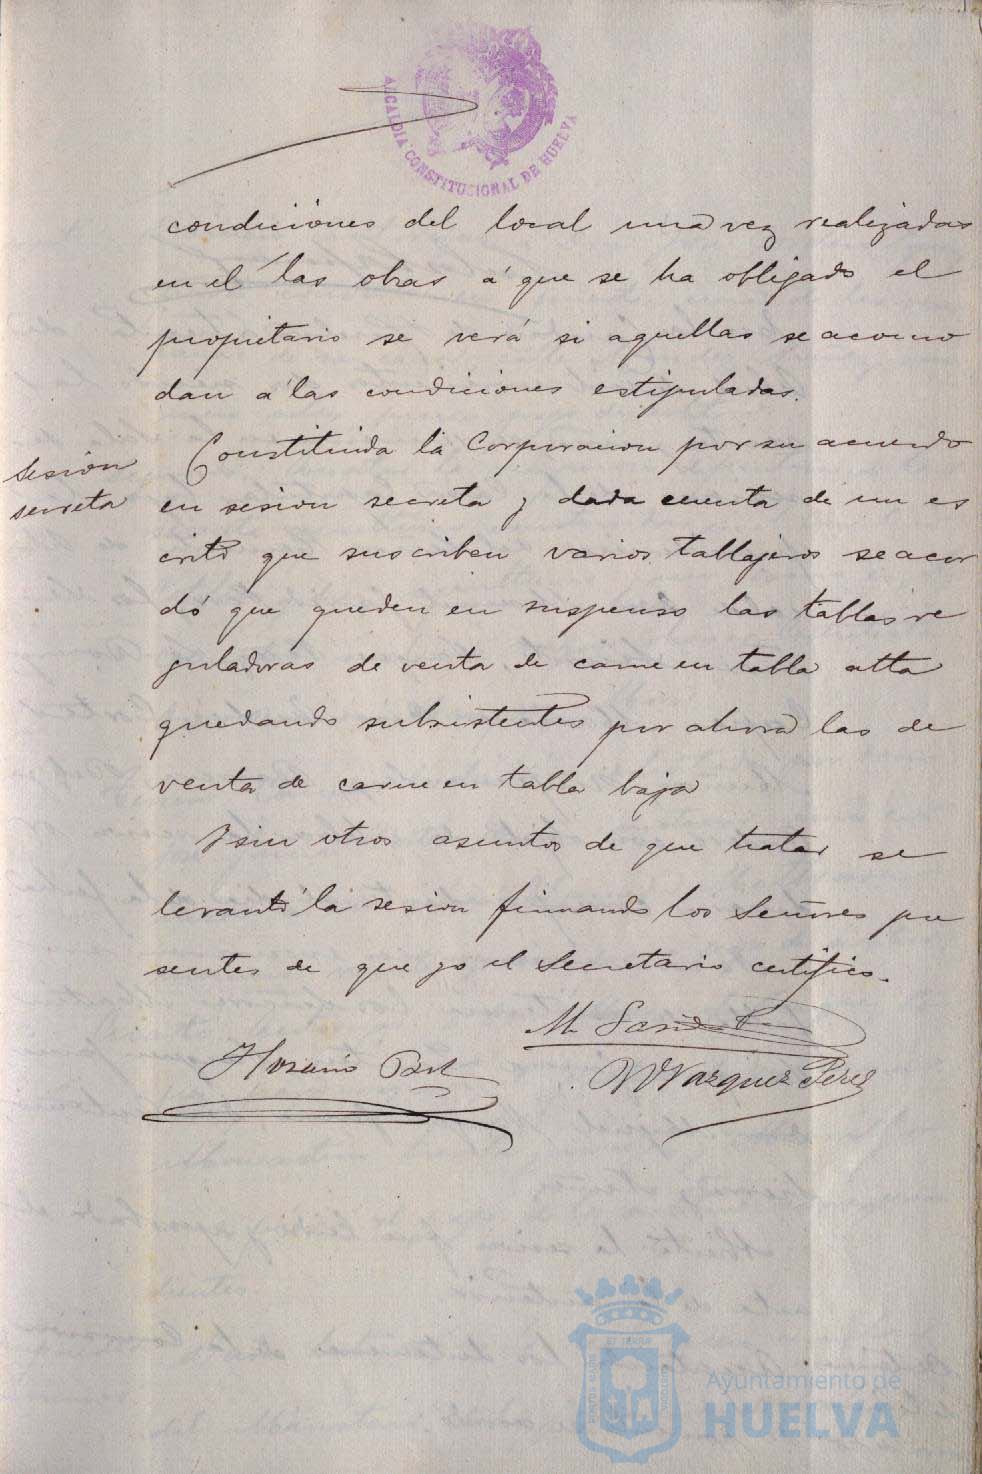 ALCALDIA CONSTITUCIONAL DE HUELVA
condiciónes del local una vez realizadas
en él las obras á que se ha obligado el
propietario se verá si aquellas se acomo
dan á las condiciónes estipuladas.
Sesión
secreta
Constituida la Corporacion por su acuerdo
en sesion secreta y dada cuenta de un es
crito que suscriben varios tablajeros se acor
dó que queden en suspenso las tablas re
guladoras de venta de carne en tabla alta
quedando subsistentes por ahora las de
venta de carne en tabla baja
Y sin otros asuntos de que tratar se
levantó la sesion firmando los Señores pre
sentes de que yo el Secretario certifico.
M
Horacio
Vazquez Perez
Ayuntamiento de
HUELVA